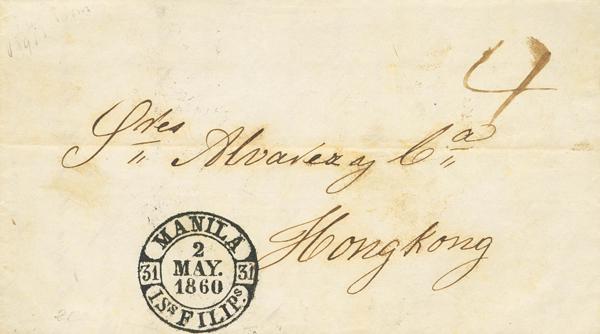 4
Sres Alvarez y Ca
Hongkong
MANILA
2
MAY.
1860
31 31
Is FILIPs